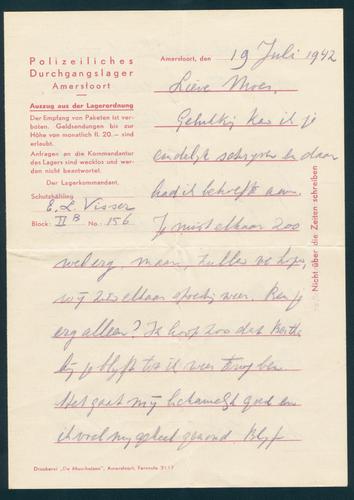 Polizeiliches
Durchgangslager
Amersfoort
Auszug aus der Lagerordnung
Der Empfang von Paketen ist ver-
boten. Geldsendungen bis zur
Höhe von monatlich fl. 20.— sind
erlaubt.
Anfragen an die Kommandantur
des Lagers sind wecklos und wer-
den nicht beantwortet.
Der Lagerkommandant.
Schutzhäftling
E. L. Visser
Block: II B No.: 156
Amersfoort, den 19 Juli 1942
Lieve Moes,
Gelukkig kan ik je
eindelijk schrijven en daar
had ik behoefte aan.
Je mist elkaar zoo
wel erg, maar, zullen we hopen,
wij zien elkaar spoedig weer. Ben je
erg alleen? Ik hoop zoo dat
bij je blijft tot ik weer terug ben.
Het gaat mij lichamelijk goed en
ik voel mij geheel gezond. Blijf
Nicht über die Zeilen schreiben
Drukkerij „De Maasheizen", Amersfoort, Formule 3117